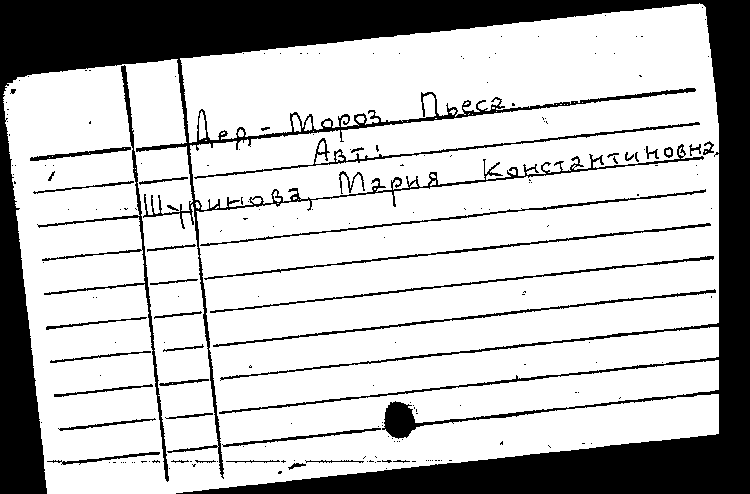 Дед-Мороз. Пьеса.
Авт.:
Шуринова, Мария Константиновна.